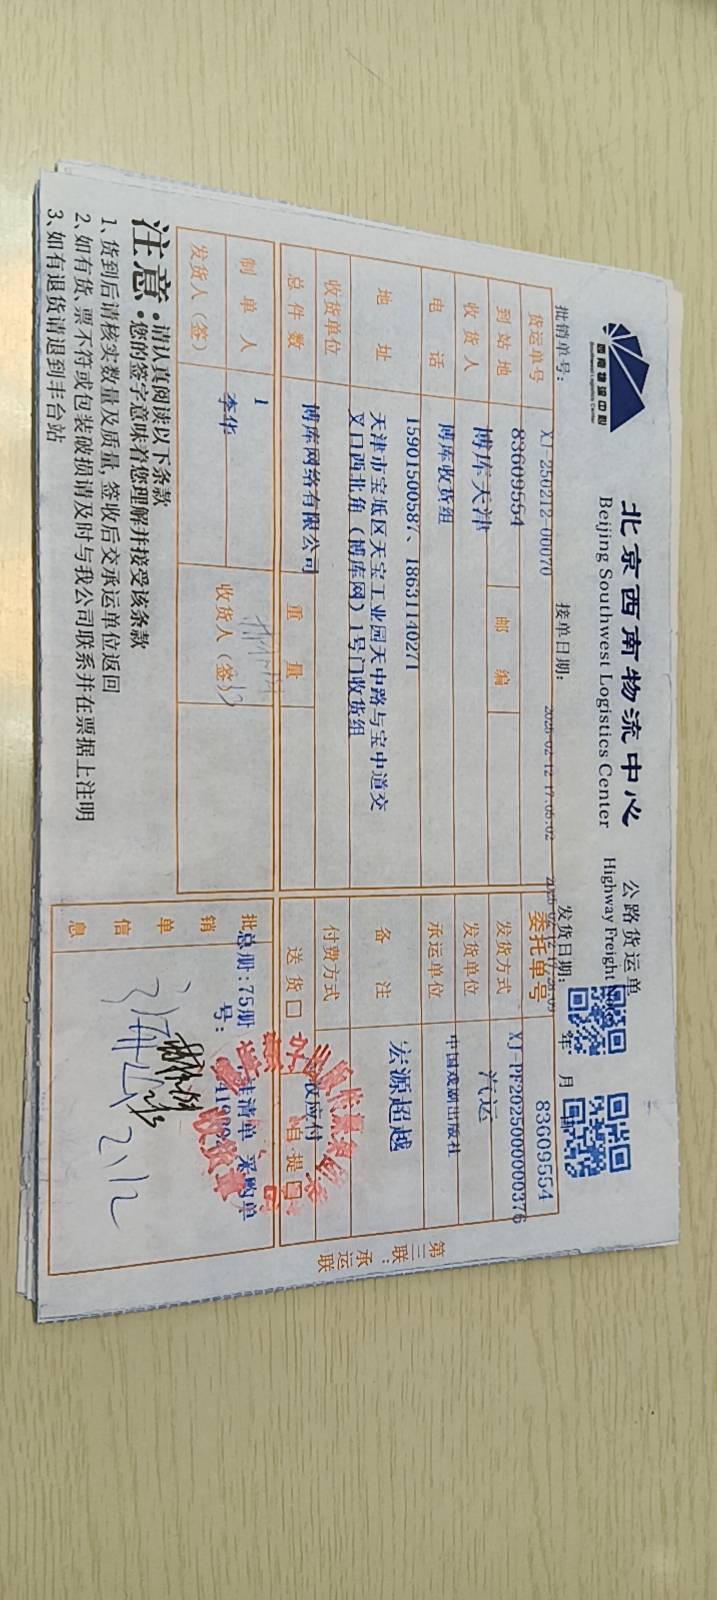 西南物流中心
Southwest Logistics Center
北京西南物流中心
Beijing Southwest Logistics Center
公路货运单
Highway Freight
批销单号:
XJ-250212-00070
接单日期:
2025-02-12 17:05:02
发货日期:
年 月
货运单号 83609554
委托单号 83609554
到站地 博库天津 邮编
发货方式 汽运
XJ-PF2025000000376
收货人 博库收货组
发货单位 中国戏剧出版社
电话 15901500587、18631140271
承运单位 宏源超越
地址 天津市宝坻区天宝工业园天中路与宝中道交
叉口西北角(博库网)1号门收货组
备注
收货单位 博库网络有限公司
付费方式 收应付
总件数 1 重量
送货□ 自提□
制单人 李华
发货人(签)
收货人(签)
批销单信息
总册:75册
号:
清单 采购单
2.12
第三联:承运联
注意
·请认真阅读以下条款
·您的签字意味着您理解并接受该条款
1、货到后请核实数量及质量,签收后交承运单位返回
2、如有货、票不符或包装破损请及时与我公司联系并在票据上注明
3、如有退货请退到丰台站